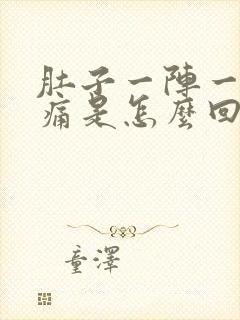 肚子一陣一
痛是怎麼回
童澤